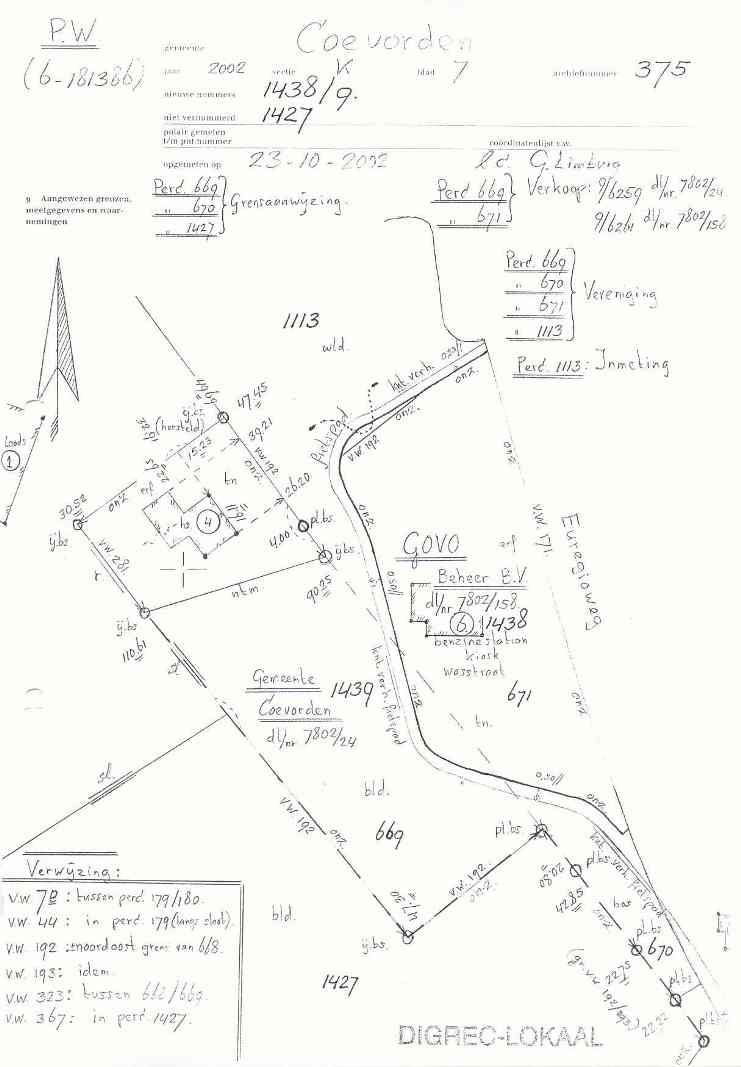 P.W.
(6-181386)
gemeente Coevorden
jaar 2002 sectie K blad 7 archiefnummer 375
nieuwe nummers 1438/9.
niet vernummerd 1427
polair gemeten
t/m pnt-nummer
coördinatenlijst v.w.
opgemeten op 23-10-2002
9 Aangewezen grenzen,
meetgegevens en waar-
nemingen
Perd. 669
" 670
" 1427
Grensaanwijzing.
Perd 669
" 671
Verkoop: 9/6259 dl/nr. 7802/24
9/6261 dl/nr 7802/158
Perd. 669
" 670
" 671
" 1113
Vereniging
Perd. 1113: Inmeting
1113
wld.
47.45
ij.bs
(hersteld)
39.21
15.23
onz.
v.w 192
tn
26.20
11.91
erf
hs
4
pl.bs.
4.00
ij.bs
90.25
30.52
onz
ij.bs
v.w 281
r
ntm
ij.bs
110.61
Loods
1
fietspad
v.w 192
onz.
knt. verh.
0.50//
onz.
onz.
onz.
v.w. 171.
Euregioweg
onz
GOVO
erf
Beheer B.V
dl/nr 7802/158
6
1438
benzinestation
kiosk
wasstraat
671
tn.
0.50//
onz
knt. verh. fietspad
Gemeente 1439
Coevorden
dl/nr 7802/24
bld.
669
sl.
v.w 192
onz.
47.30
ij.bs.
v.w. 192.
onz.
pl.bs.
0.50//
onz
20.80
pl.bs
knt. verh. fietspad
42.85
bos
onz
pl.bs
670
22.75
pl.bs
22.22
pl.bs
onz.
bld.
1427
Verwijzing:
v.w 7B : tussen perd. 179/180.
v.w 44 : in perd. 179 (langs sloot).
v.w. 192 : noordoost grens van 668.
v.w. 193: idem.
v.w. 323: tussen 662/669.
v.w. 367: in perd. 1427.
DIGREC-LOKAAL